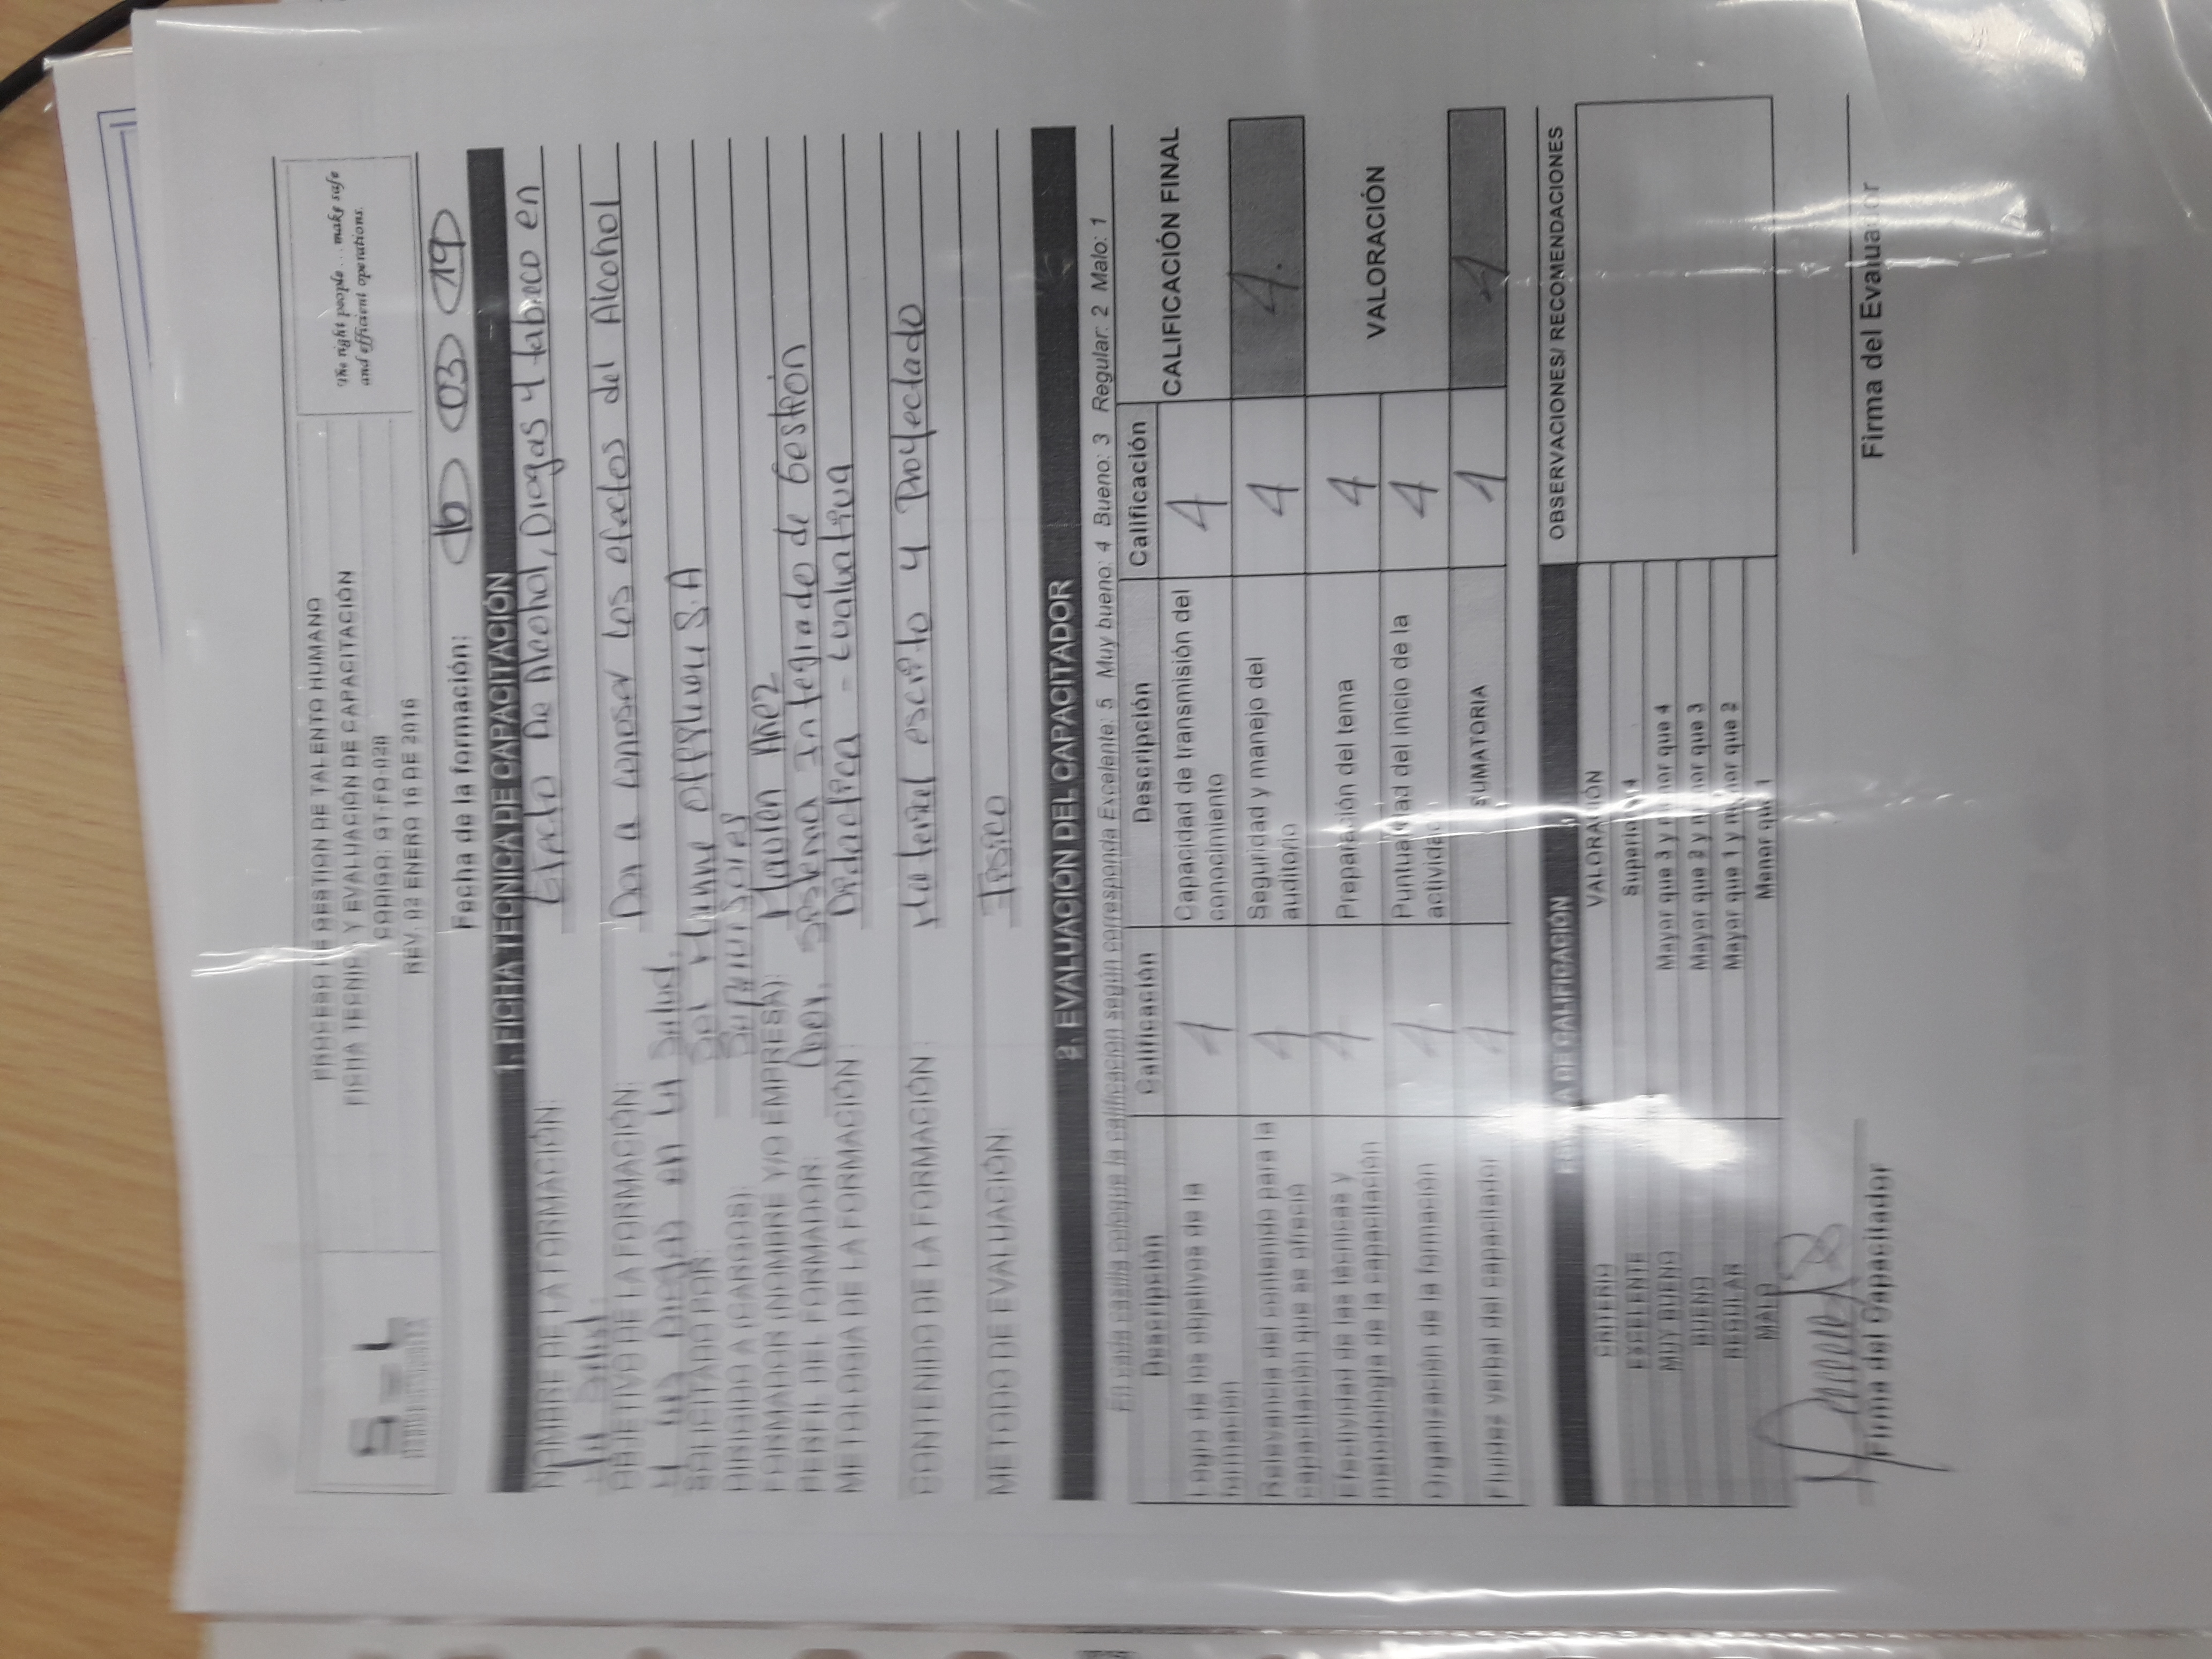 PROCESO DE GESTION DE TALENTO HUMANO
FICHA TECNICA Y EVALUACIÓN DE CAPACITACIÓN
CODIGO: GT-FO-028
REV. 02 ENERO 16 DE 2016
The right people ... make safe
and efficient operations.
Fecha de la formación: 16 03 19
1. FICHA TECNICA DE CAPACITACIÓN
NOMBRE DE LA FORMACIÓN: Efecto De Alcohol, Drogas y tabaco en
la Salud.
OBJETIVO DE LA FORMACIÓN: Dar a conoser los efectos del Alcohol
y las Drogas en la Salud.
SOLICITADO POR: Sol Marine Offshore S.A
DIRIGIDO A (CARGOS): Supervisores
FORMADOR (NOMBRE Y/O EMPRESA): Añez
PERFIL DEL FORMADOR: Sistema Integrado de Gestión
METOLOGIA DE LA FORMACIÓN : Didactica - Evaluativa
CONTENIDO DE LA FORMACIÓN : Material escrito y Proyectado
METODO DE EVALUACIÓN: Fisico
2. EVALUACIÓN DEL CAPACITADOR
En cada casilla coloque la calificacion según corresponda Excelente: 5 Muy bueno: 4 Bueno: 3 Regular: 2 Malo: 1
Descripción Calificación Descripción Calificación
CALIFICACIÓN FINAL
Logro de los objetivos de la
formación 4
Capacidad de transmisión del
conocimiento 4
Relevancia del contenido para la
capacitación que se ofreció 4
Seguridad y manejo del
auditorio 4
4.
Efectividad de las técnicas y
metodología de la capacitación 4
Preparación del tema 4
VALORACIÓN
Organización de la formación 4
Puntualidad del inicio de la
actividad 4
Fluidez verbal del capacitador 4
SUMATORIA 4
4
ESCALA DE CALIFICACIÓN
OBSERVACIONES/ RECOMENDACIONES
CRITERIO VALORACIÓN
EXCELENTE Superior 4
MUY BUENO Mayor que 3 y menor que 4
BUENO Mayor que 2 y menor que 3
REGULAR Mayor que 1 y menor que 2
MALO Menor que 1
Firma del Capacitador
Firma del Evaluador